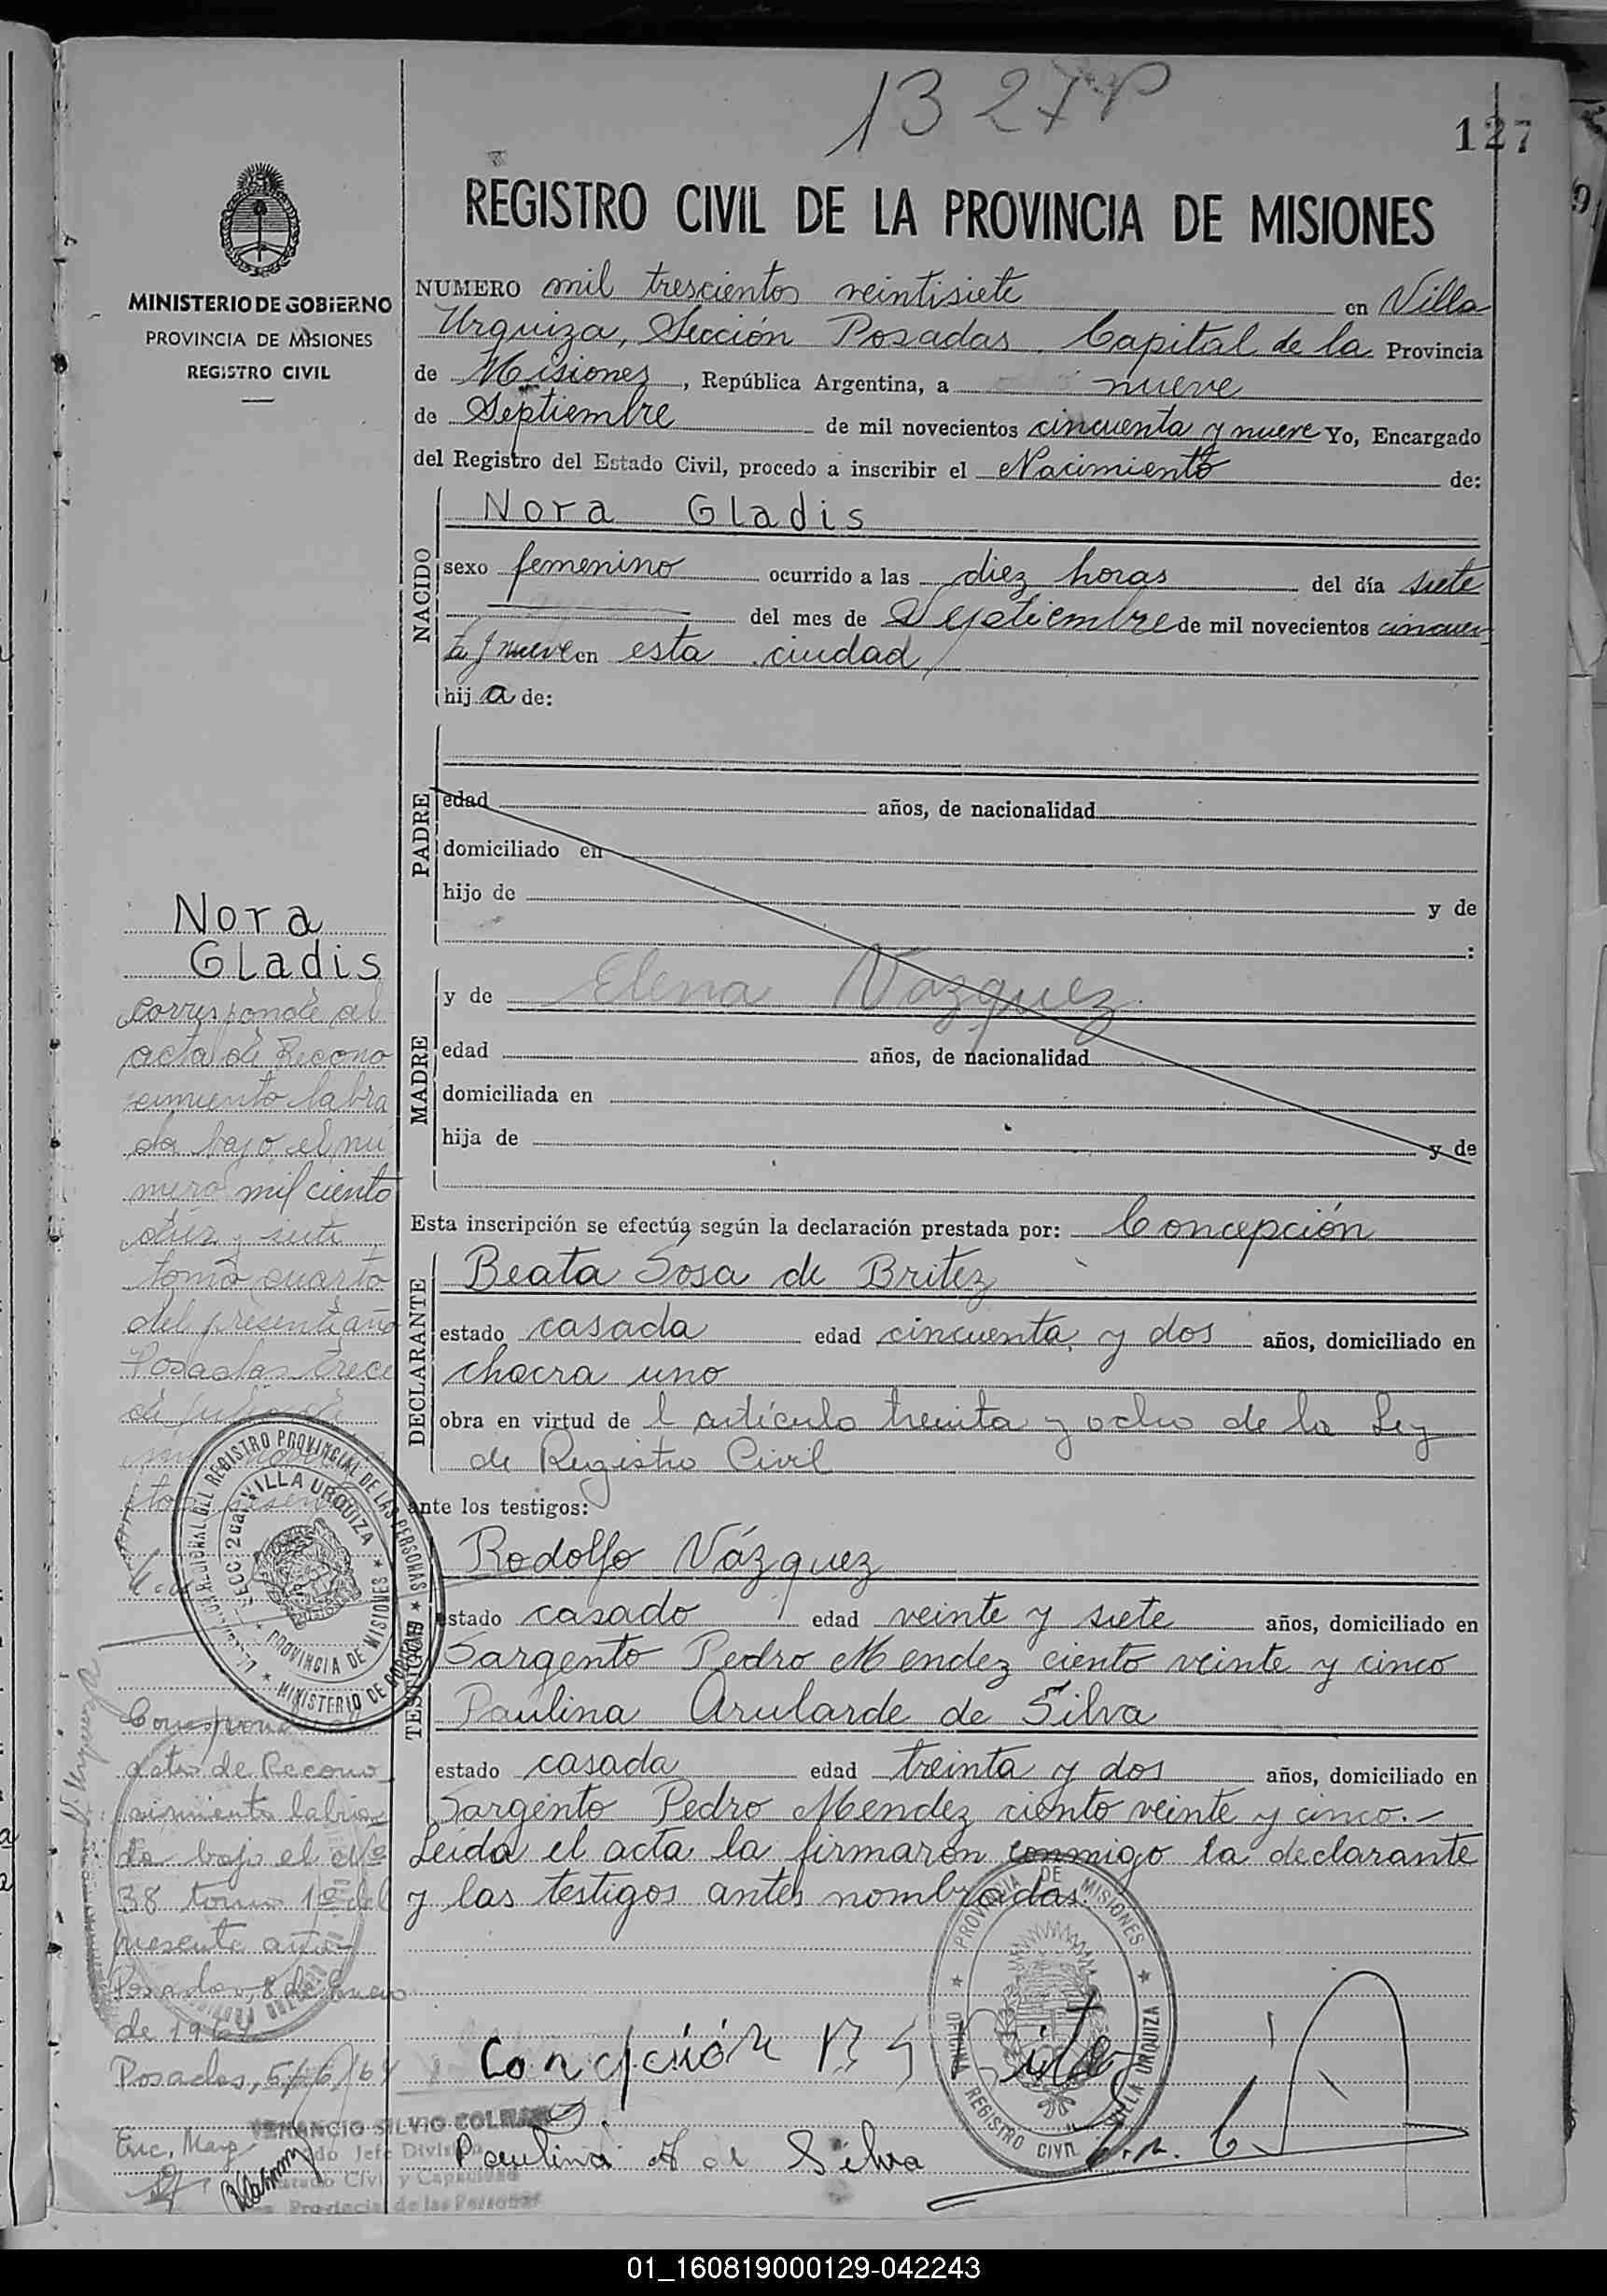 1327P
127
REGISTRO CIVIL DE LA PROVINCIA DE MISIONES
MINISTERIO DE GOBIERNO
PROVINCIA DE MISIONES
REGISTRO CIVIL
NUMERO mil trescientos veintisiete en Villa
Urquiza, Sección Posadas, Capital de la Provincia
de Misiones, República Argentina, a nueve
de Septiembre de mil novecientos cincuenta y nueve Yo, Encargado
del Registro del Estado Civil, procedo a inscribir el Nacimiento de:
NACIDO
Nora Gladis
sexo femenino ocurrido a las diez horas del día siete
del mes de Septiembre de mil novecientos cincuen
ta y nueve en esta ciudad
hija de:
PADRE
edad años, de nacionalidad
domiciliado en
hijo de y de
:
MADRE
y de Elena Vazquez
edad años, de nacionalidad
domiciliada en
hija de y de
Esta inscripción se efectúa según la declaración prestada por: Concepción
DECLARANTE
Beata Sosa de Britez
estado casada edad cincuenta y dos años, domiciliado en
chacra uno
obra en virtud de l artículo treinta y ocho de la Ley
de Registro Civil
ante los testigos:
TESTIGOS
Rodolfo Vázquez
estado casado edad veinte y siete años, domiciliado en
Sargento Pedro Mendez ciento veinte y cinco
Paulina Arularde de Silva
estado casada edad treinta y dos años, domiciliado en
Sargento Pedro Mendez ciento veinte y cinco.-
Leida el acta la firmaron conmigo la declarante
y las testigos antes nombradas.
Concepción B S
Paulina A de Silva
PROVINCIA DE MISIONES
OFICINA REGISTRO CIVIL VILLA URQUIZA
Nora
Gladis
Corresponde al
acta de Recono
cimiento labra
da bajo el nú
mero mil ciento
diez y siete
tomo cuarto
del presente año
Posadas trece
de Julio de
REGISTRO PROVINCIAL DE LAS PERSONAS
MINISTERIO DE
SECC 2da. VILLA URQUIZA
PROVINCIA DE MISIONES
acta de Recono
cimiento labra
da bajo el Nº
38 tomo 1º del
presente año
Posadas, 8 de Enero
de 1964
Posadas, 5/6/64
VENANCIO SILVIO
Jefe División
Civil y Capacidad
Provincial de las Personas
01_160819000129-042243